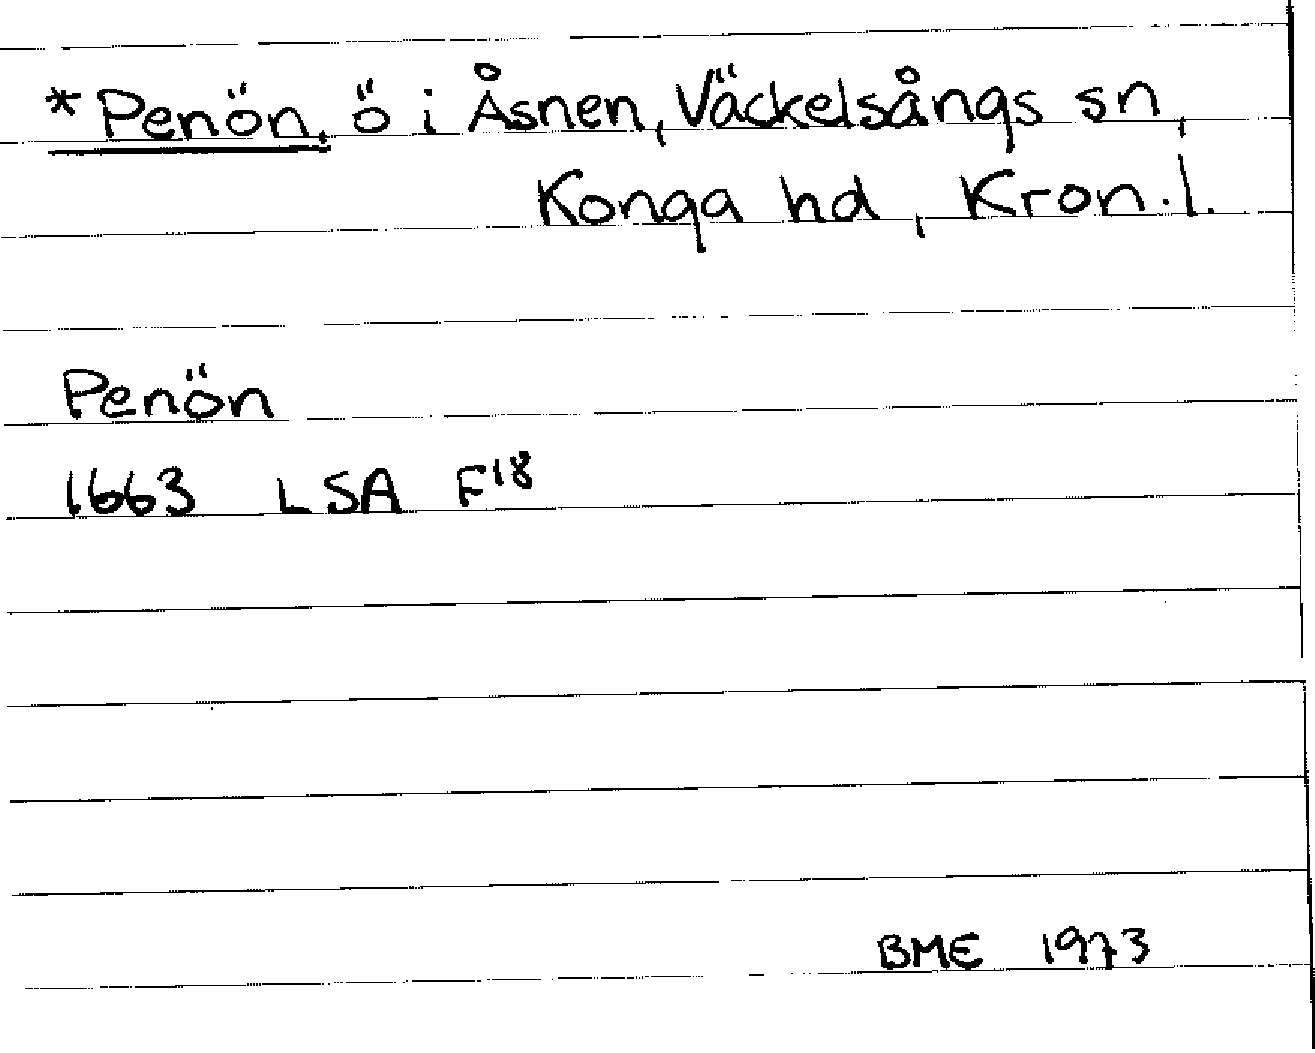 *Penön, ö i Åsnen, Väckelsångs sn,
Konga hd, Kron.l.
Penön
1663 LSA F18
BME 1973